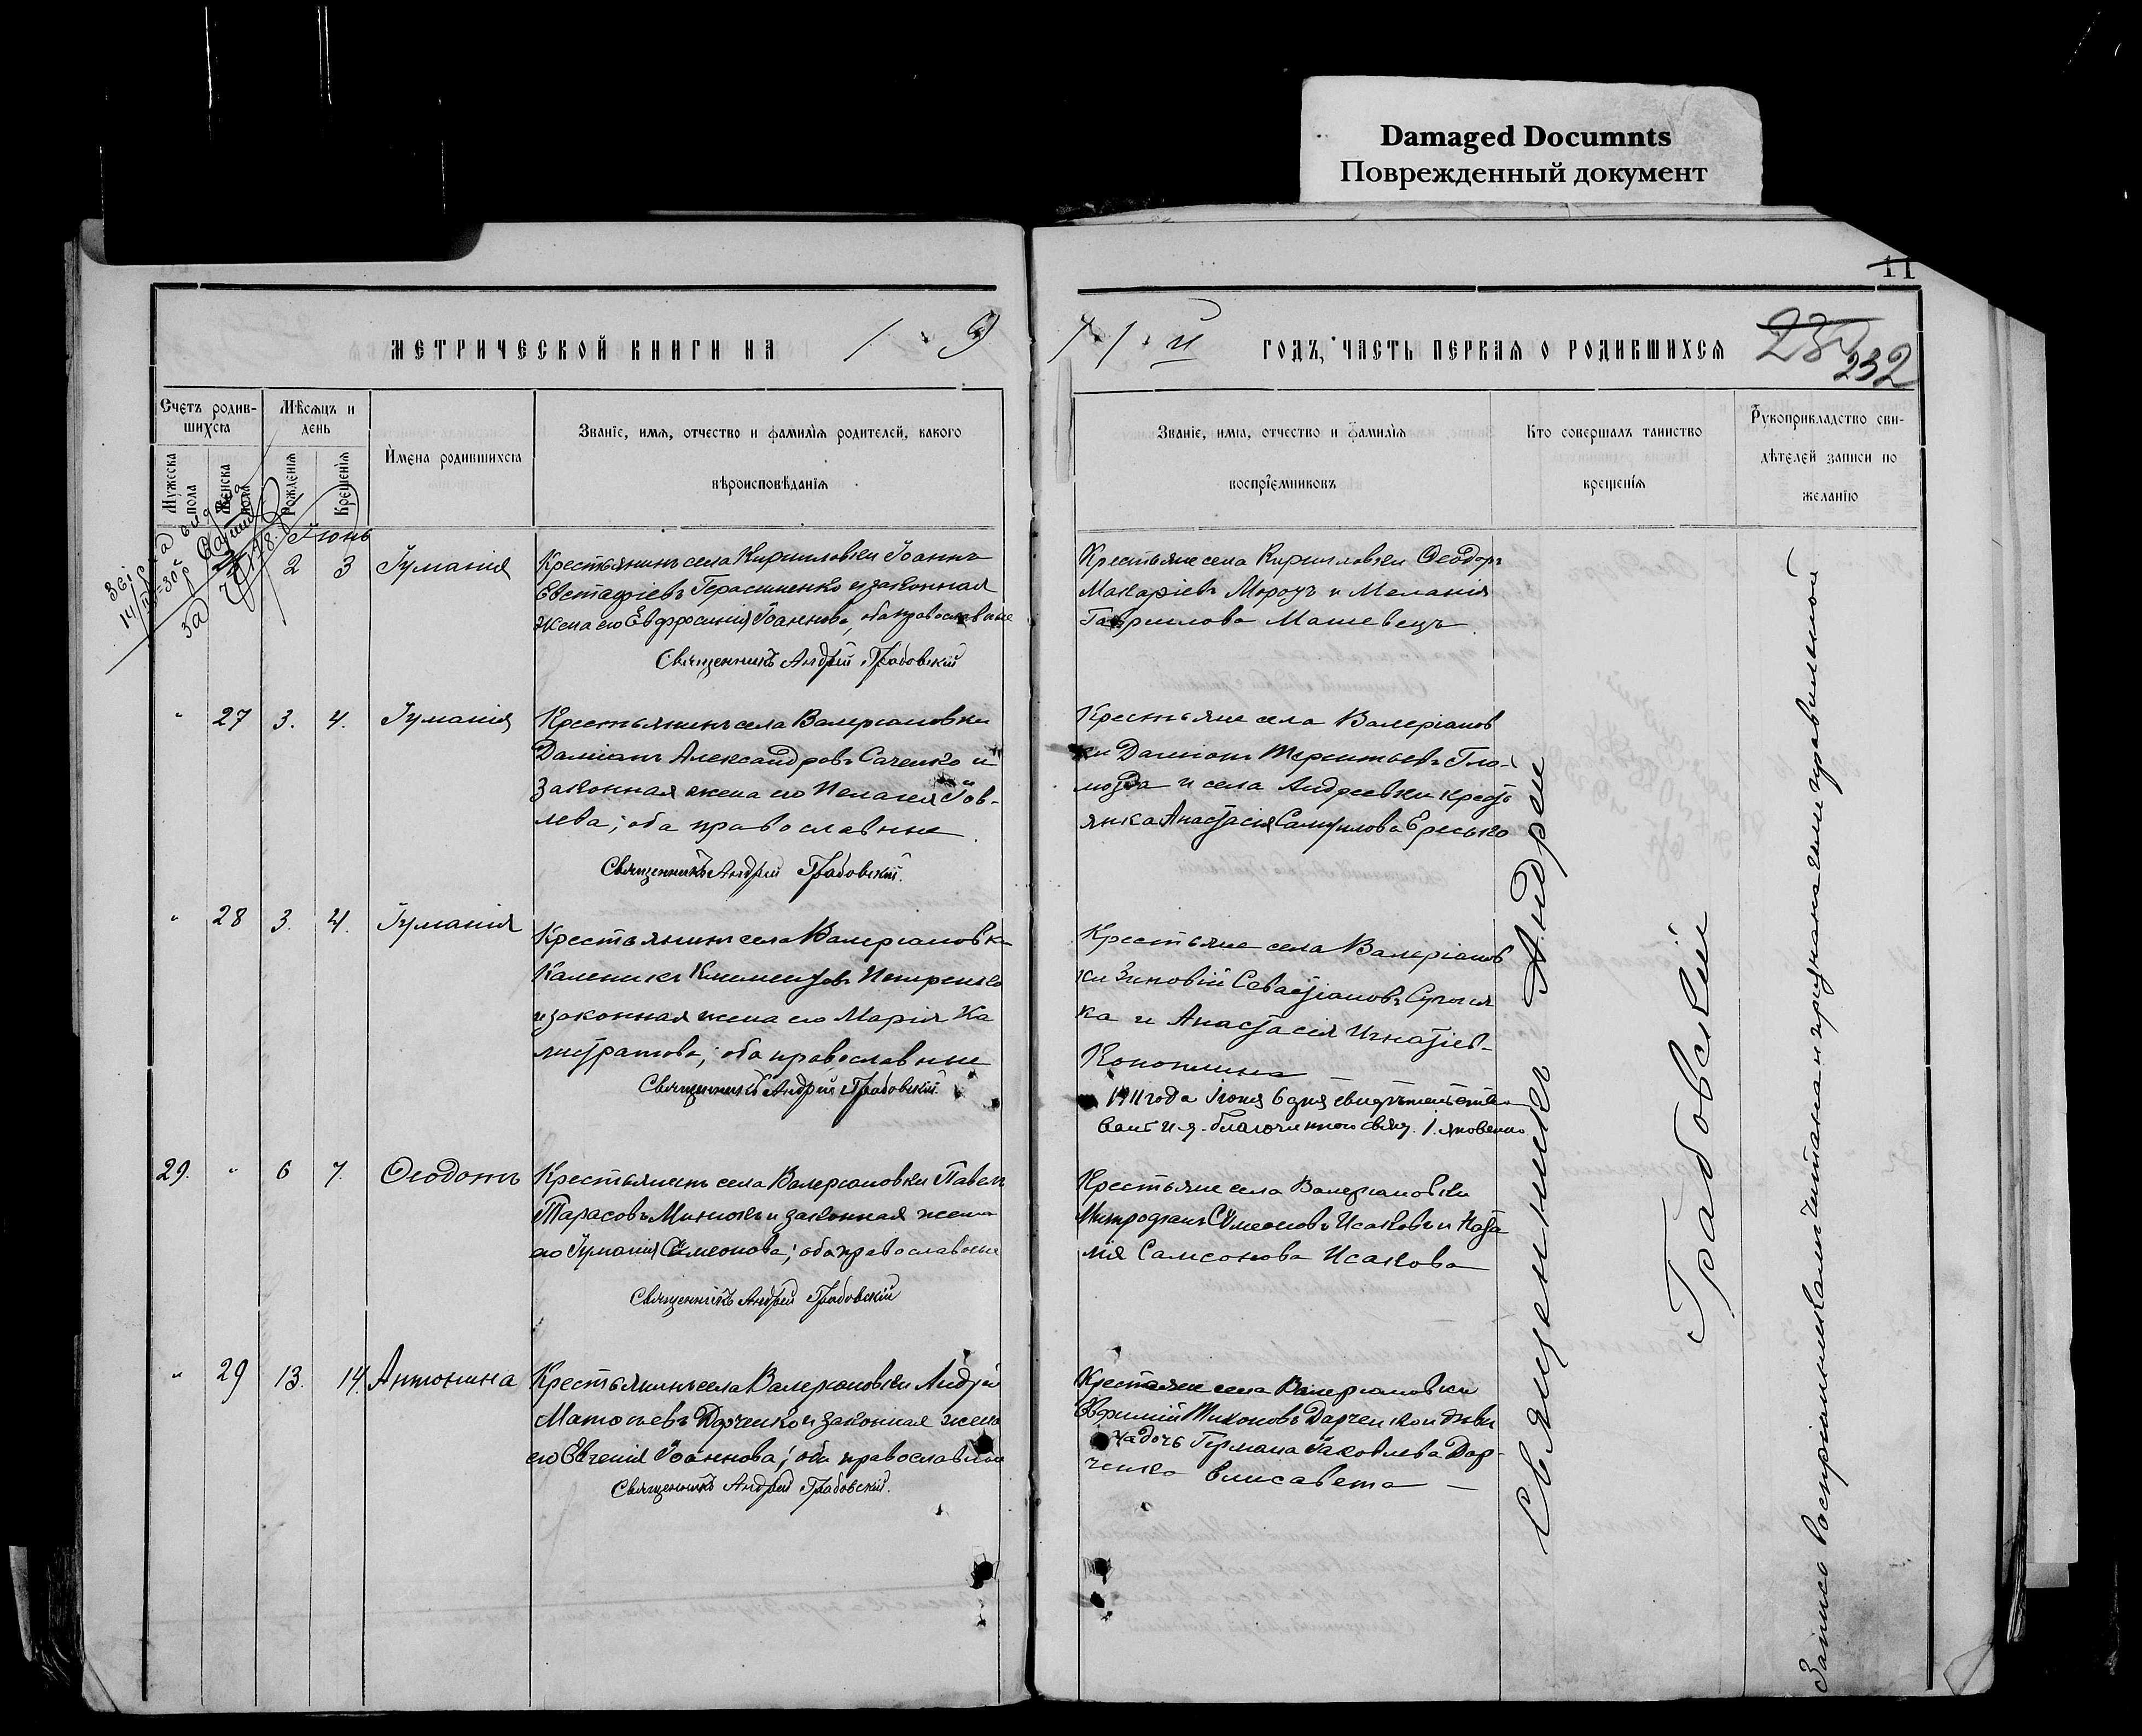 Damaged Documnts
Поврежденный документ
11
МЕТРИЧЕСКОЙ КНИГИ НА 19
11 й ГОДЪ, ЧАСТЬ ПЕРВАЯ О РОДИВШИХСЯ
232
Счетъ родив-
шихся
Мужеска пола
Женска пола
Мѣсяцъ и
день
Рожденія
Крещенія
Имена родившихся
Званіе, имя, отчество и фамилія родителей, какого
вѣроисповѣданія
Званіе, имя, отчество и фамилія
воспріемниковъ
Кто совершалъ таинство
крещенія
Рукоприкладство сви-
дѣтелей записи по
желанію
Іюнь
2 3 Іуліанія
Крестьянинъ села Кирилловки Іоаннъ
Евстафіевъ Герасименко и законная
жена его Евфросинія Іоаннова, оба православные
Священникъ Андрей Грабовскій
Крестьяне села Кирилловки Ѳеодоръ
Макаріевъ Морозъ и Меланія
Гавриилова Машевецъ
" 27 3. 4. Іуліанія
Крестьянинъ села Валеріановки
Даміанъ Александровъ Саченко и
законная жена его Пелагія Іов-
лева; оба православные
Священникъ Андрей Грабовскій.
Крестьяне села Валеріанов
ки Даміанъ Терентьевъ Гло-
мозда и села Андреевки крест
янка Анастасія Самуилова Ересько
" 28 3. 4. Іуліанія
Крестьянинъ села Валеріановки
Каленикъ Климентовъ Петренко
и законная жена его Марія Ка
листратова; оба православные
Священникъ Андрей Грабовскій.
Крестьяне села Валеріанов
ки Зиновій Севастіановъ
ка и Анастасія Игнатіев-
1911 года Іюня 6 дня свидѣтельство
валъ И. д. благочиннаго свящ. І. Яковенко
29. " 6 7. Ѳеодотъ
Крестьянинъ села Валеріановки Павелъ
Тарасовъ и законная жена
его Іуліанія Симеонова; оба православные
Священникъ Андрей Грабовскій
Крестьяне села Валеріановки
Митрофанъ Симеоновъ Исаковъ и Ната
лія Самсонова Исакова
" 29 13. 14. Антонина
Крестьянинъ села Валеріановки Андрей
Матѳіевъ Дорченко и законная жена
его Евгенія Іоаннова; оба православные
Священникъ Андрей Грабовскій.
Крестьяне села Валеріановки
Евфимій Тихоновъ Дарченко и дѣви
ца дочь Германа Іаковлева Дар-
ченка Елисавета
Священникъ Андрей
Грабовскій
Запись воспріемникамъ читана и признана ими правильной